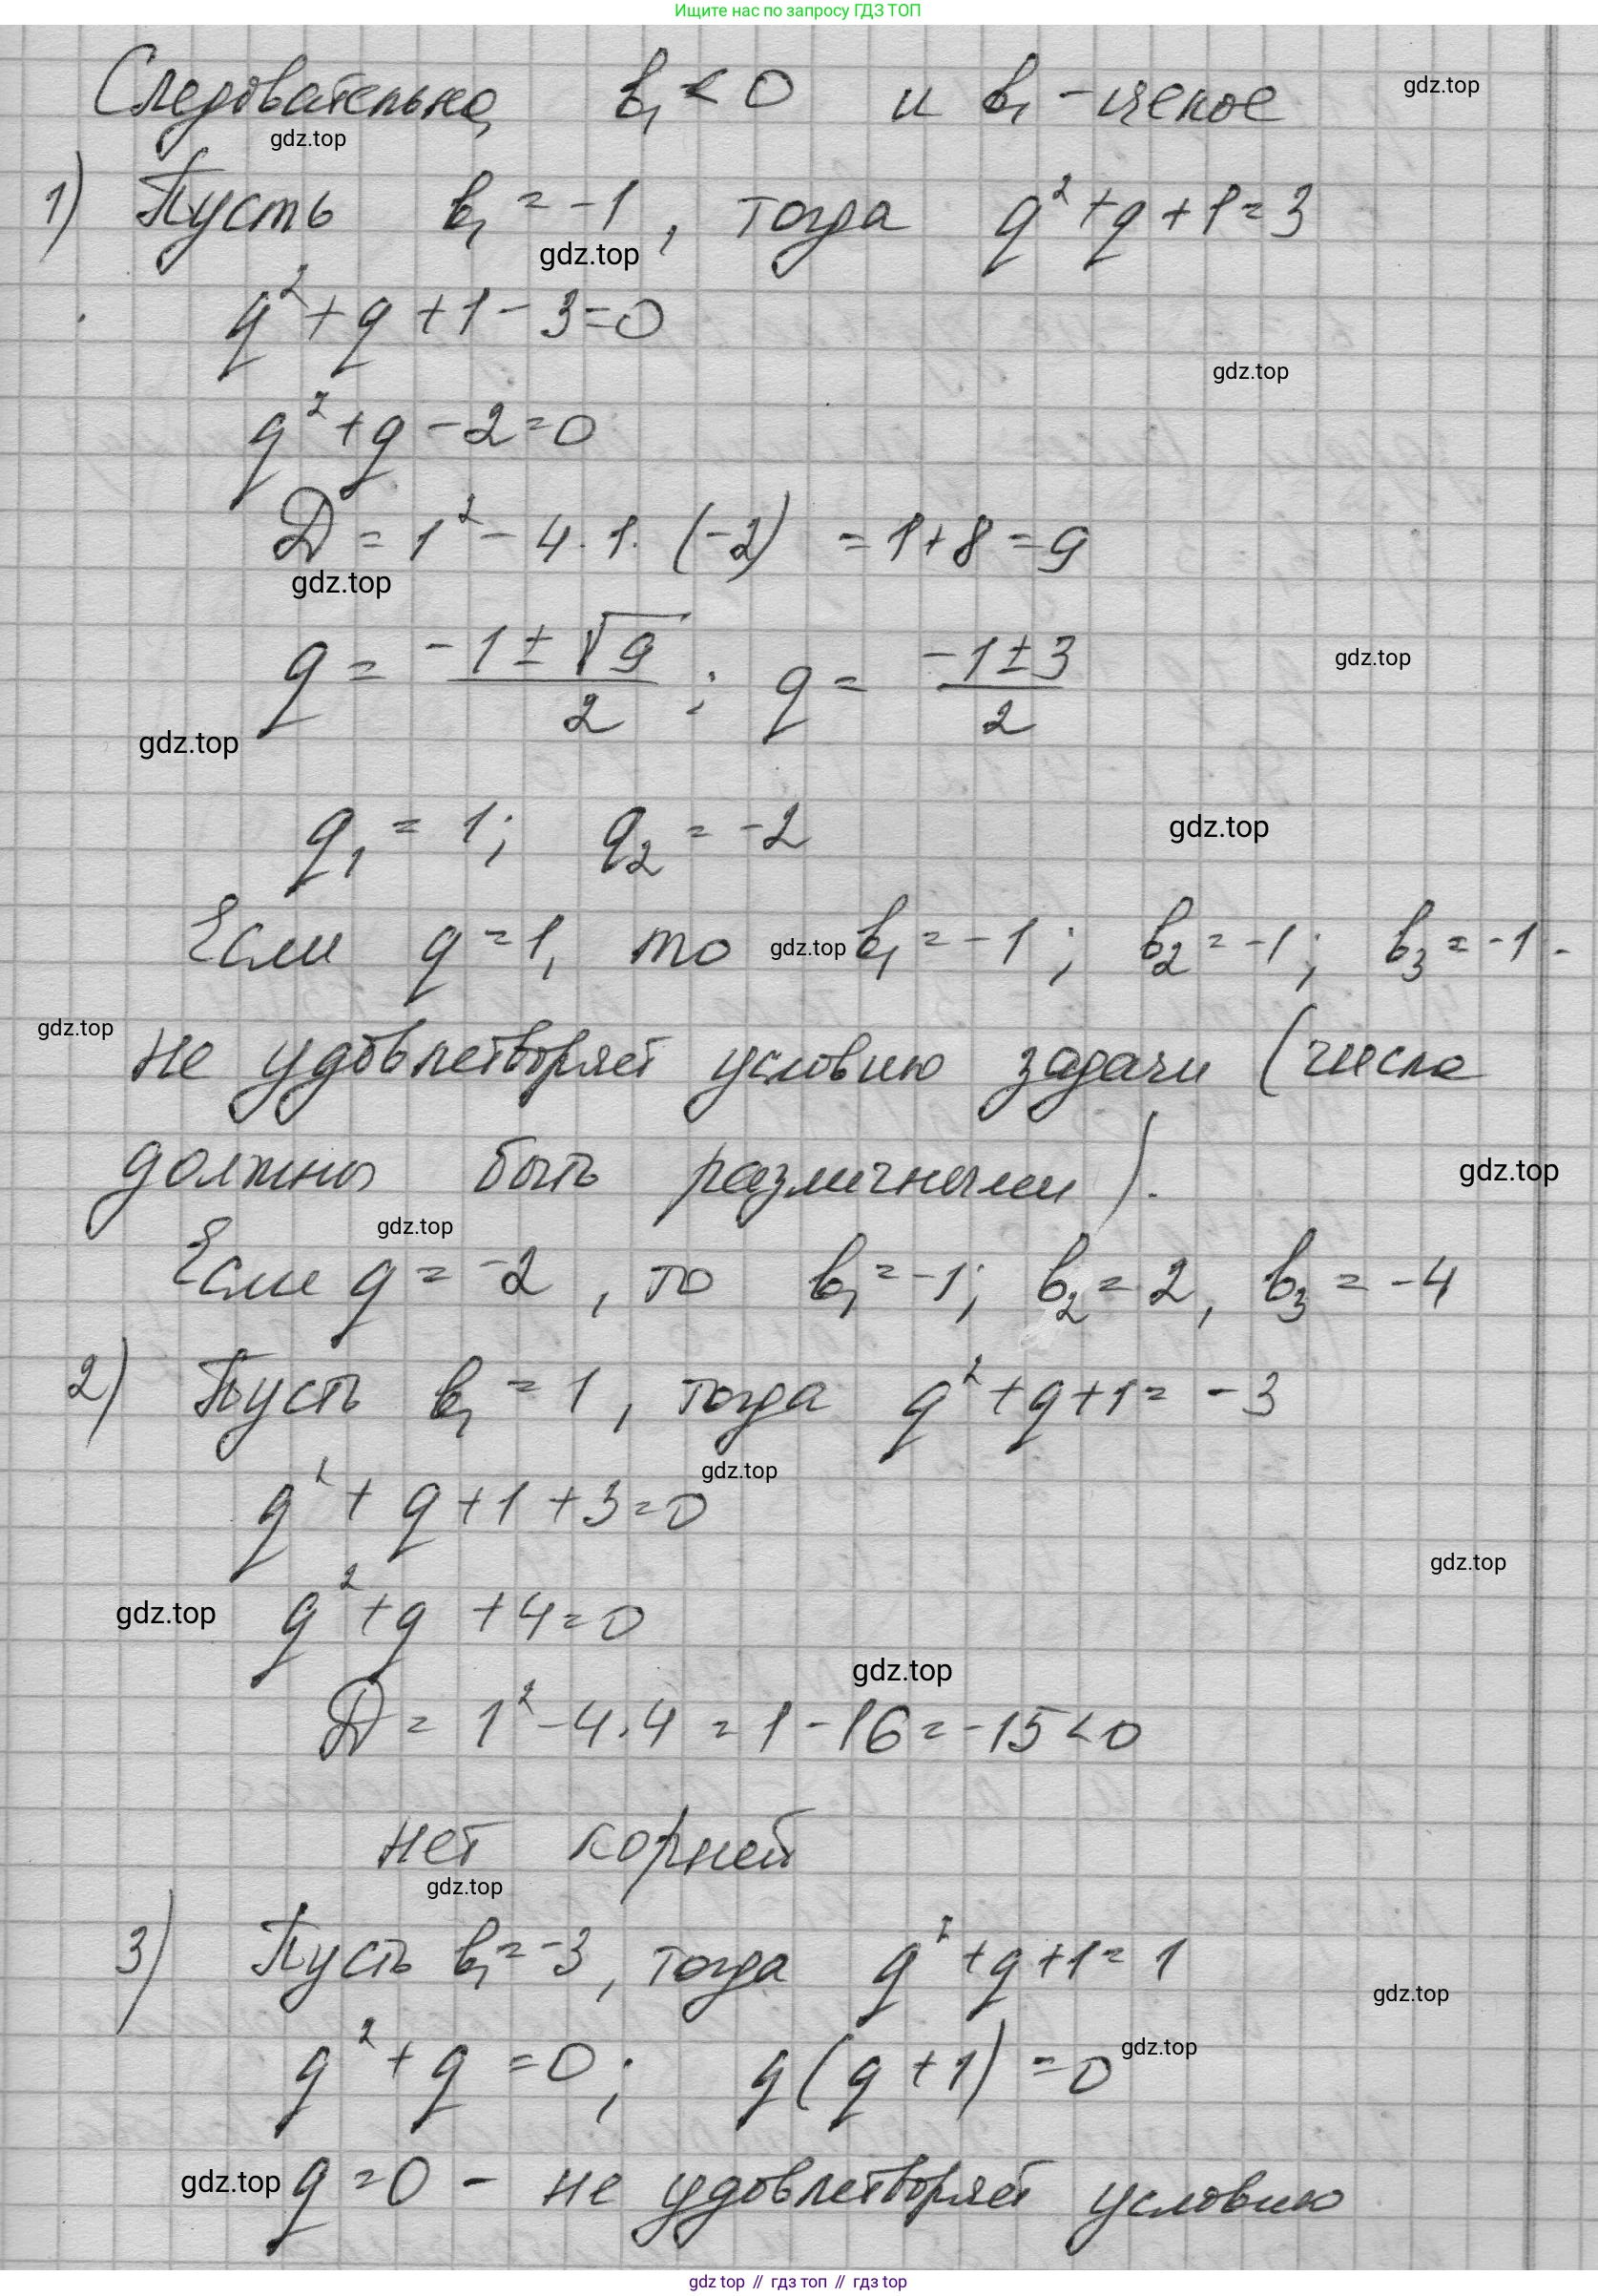 Ищите нас по запросу ГДЗ ТОП
Следовательно, b₁ < 0 и b₁ - целое
gdz.top
gdz.top
1) Пусть b₁ = -1, тогда q² + q + 1 = 3
gdz.top
q² + q + 1 - 3 = 0
gdz.top
q² + q - 2 = 0
D = 1² - 4 · 1 · (-2) = 1 + 8 = 9
gdz.top
q = (-1 ± √9)/2 ; q = (-1 ± 3)/2
gdz.top
gdz.top
q₁ = 1; q₂ = -2
gdz.top
Если q = 1, то b₁ = -1; b₂ = -1; b₃ = -1 -
gdz.top
gdz.top
не удовлетворяет условию задачи (числа
должны быть различными).
gdz.top
gdz.top
Если q = -2, то b₁ = -1; b₂ = 2, b₃ = -4
2) Пусть b₁ = 1, тогда q² + q + 1 = -3
gdz.top
q² + q + 1 + 3 = 0
gdz.top
gdz.top
q² + q + 4 = 0
gdz.top
D = 1² - 4 · 4 = 1 - 16 = -15 < 0
нет корней
gdz.top
3) Пусть b₁ = -3, тогда q² + q + 1 = 1
gdz.top
q² + q = 0; q(q + 1) = 0
gdz.top
gdz.top
q = 0 - не удовлетворяет условию
gdz top // гдз топ // гдз top